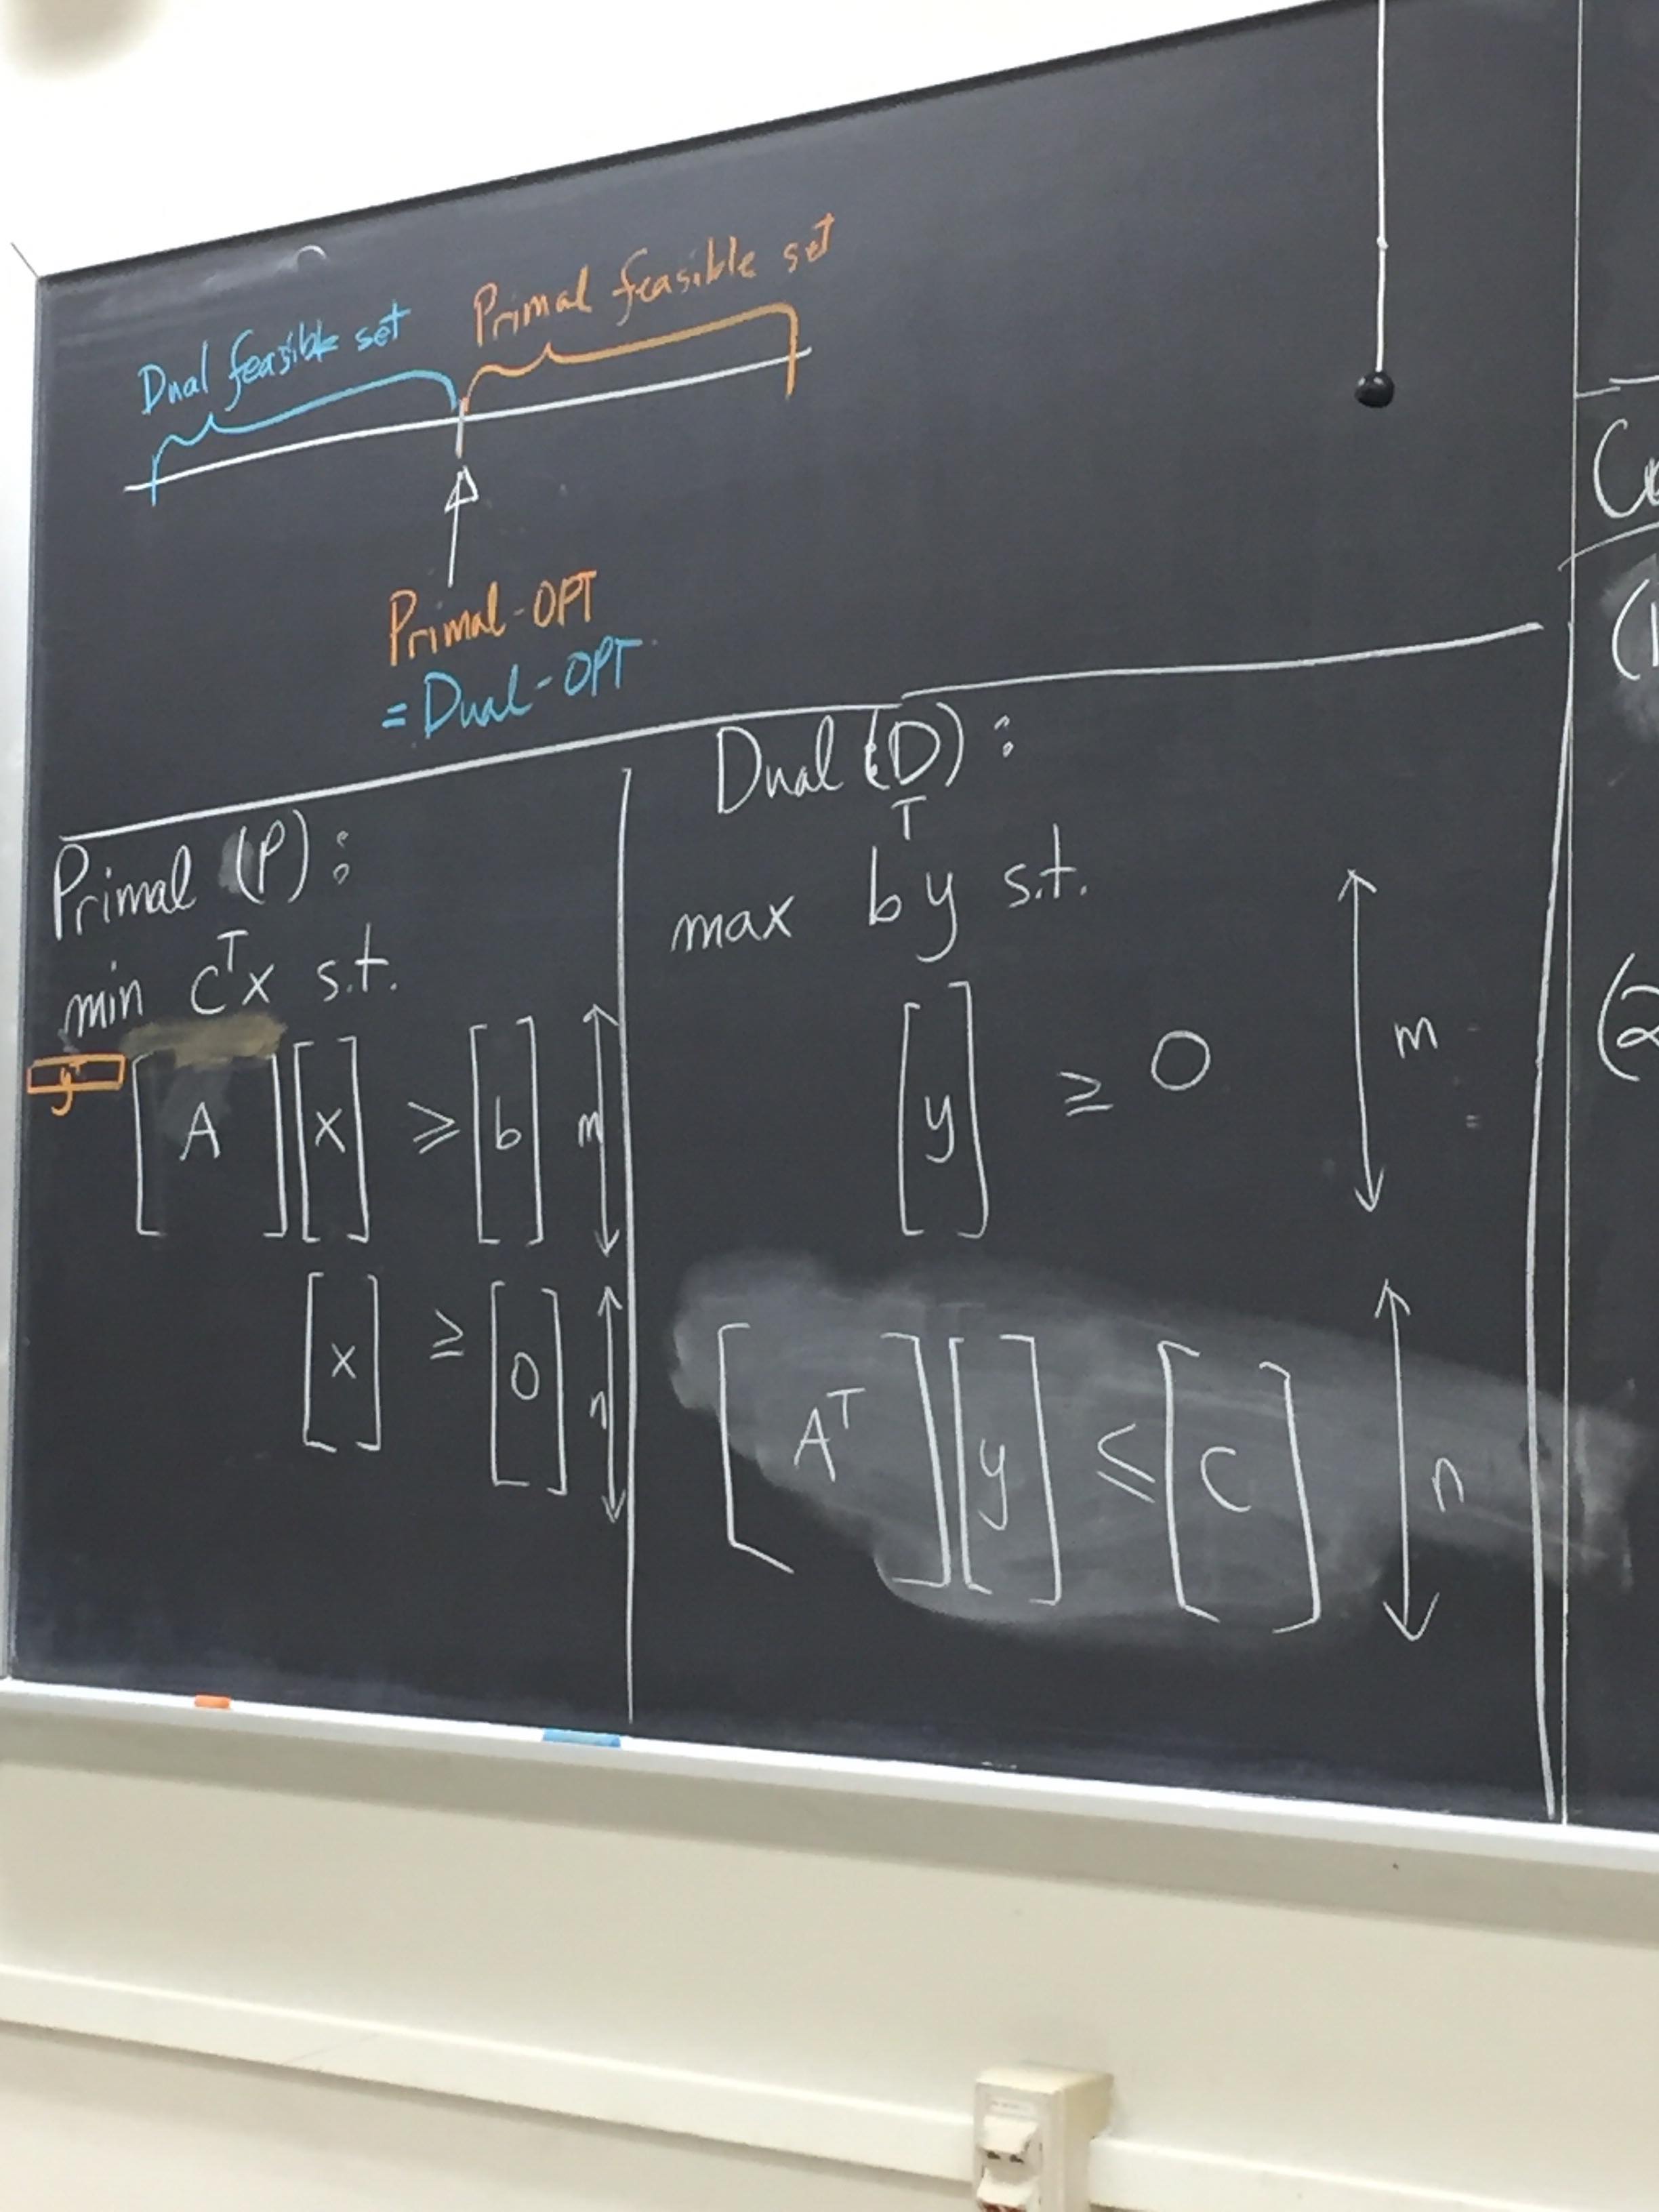 Dual feasible set
Primal feasible set
Primal-OPT
= Dual-OPT
Primal (P):
min cᵀx s.t.
yᵀ [A] [x] ≥ [b] m
[x] ≥ [0] n
Dual (D):
max bᵀy s.t.
[y] ≥ 0 m
[Aᵀ] [y] ≤ [c] n
(1
(2